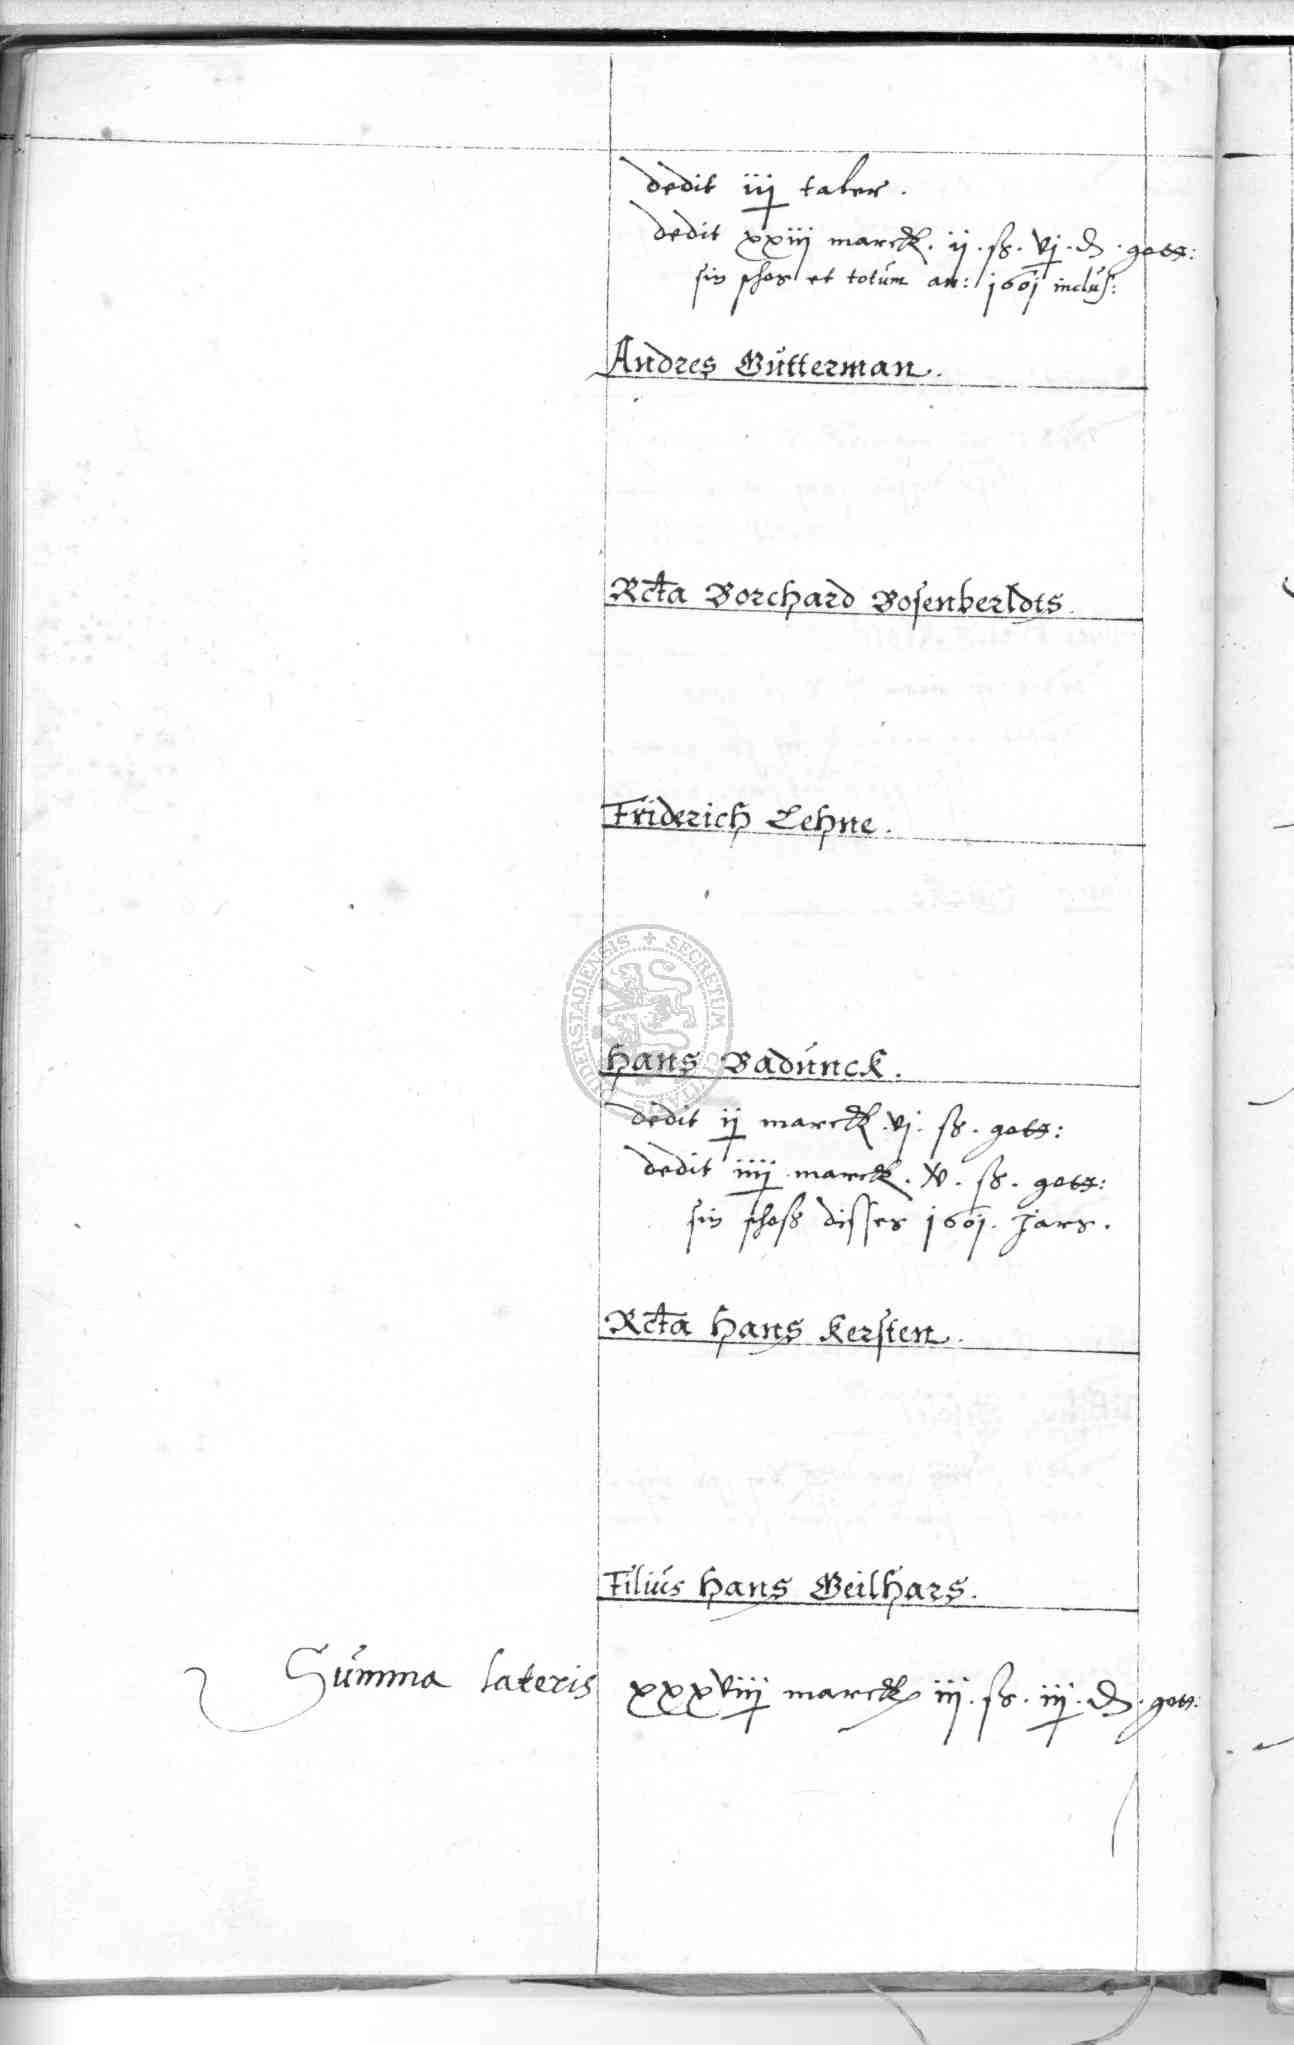 dedit iij taler.
dedit xxiij marck. ij. ß. vj. d. gott:
sin schos et totum an: 1601 inclus:
Andres Gutterman.
Rcta Borchard Bosenberldts.
Friderich Lehne.
SECRETUM CIVITATIS DUDERSTADIENSIS
Hans Badunck.
dedit ij marck. vj. ß. gott:
dedit iiij marck. xv. ß. gott:
sin schoß disses 1601. Jars.
Rcta Hans Kersten.
Filius Hans Geilhars.
Summa lateris xxxviij marck iij. ß. iij. d. gott: